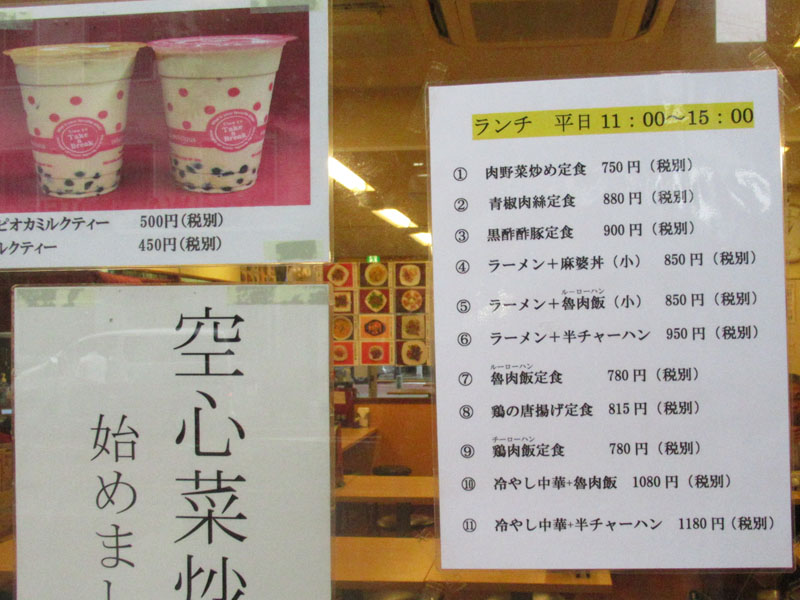 Take
Break
ピオカミルクティー 500円(税別)
ルクティー 450円(税別)
空心菜炒
始めまし
ランチ 平日 11:00〜15:00
① 肉野菜炒め定食 750円(税別)
② 青椒肉絲定食 880円(税別)
③ 黒酢酢豚定食 900円(税別)
④ ラーメン+麻婆丼(小) 850円(税別)
ルーローハン
⑤ ラーメン+魯肉飯(小) 850円(税別)
⑥ ラーメン+半チャーハン 950円(税別)
ルーローハン
⑦ 魯肉飯定食 780円(税別)
⑧ 鶏の唐揚げ定食 815円(税別)
チーローハン
⑨ 鶏肉飯定食 780円(税別)
⑩ 冷やし中華+魯肉飯 1080円(税別)
⑪ 冷やし中華+半チャーハン 1180円(税別)